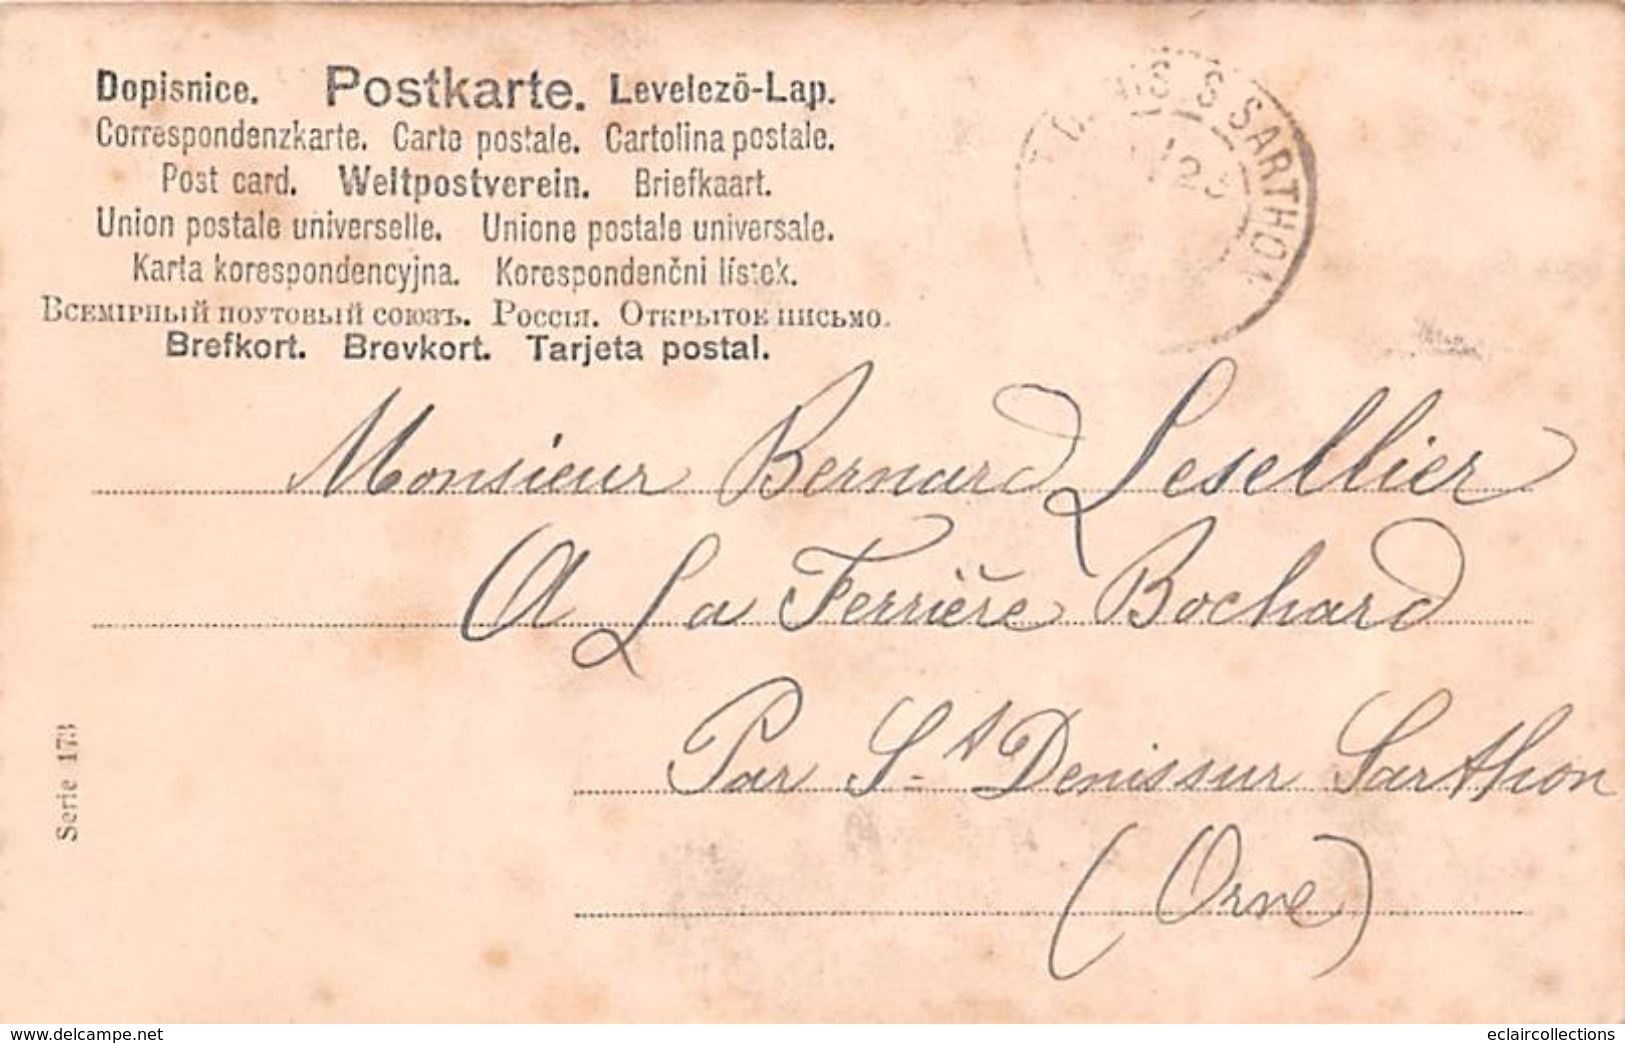 Dopisnice. Postkarte. Levelező-Lap.
Correspondenzkarte. Carte postale. Cartolina postale.
Post card. Weltpostverein. Briefkaart.
Union postale universelle. Unione postale universale.
Karta korespondencyjna. Korespondenčni lístek.
Всемірный поутовый союзъ. Россія. Открытое письмо.
Brefkort. Brevkort. Tarjeta postal.
S SARTHON
Monsieur Bernard Lesellier
A La Ferrière Bochard
Par St Denis sur Sarthon
(Orne)
Serie 173
www.delcampe.net
eclaircollections